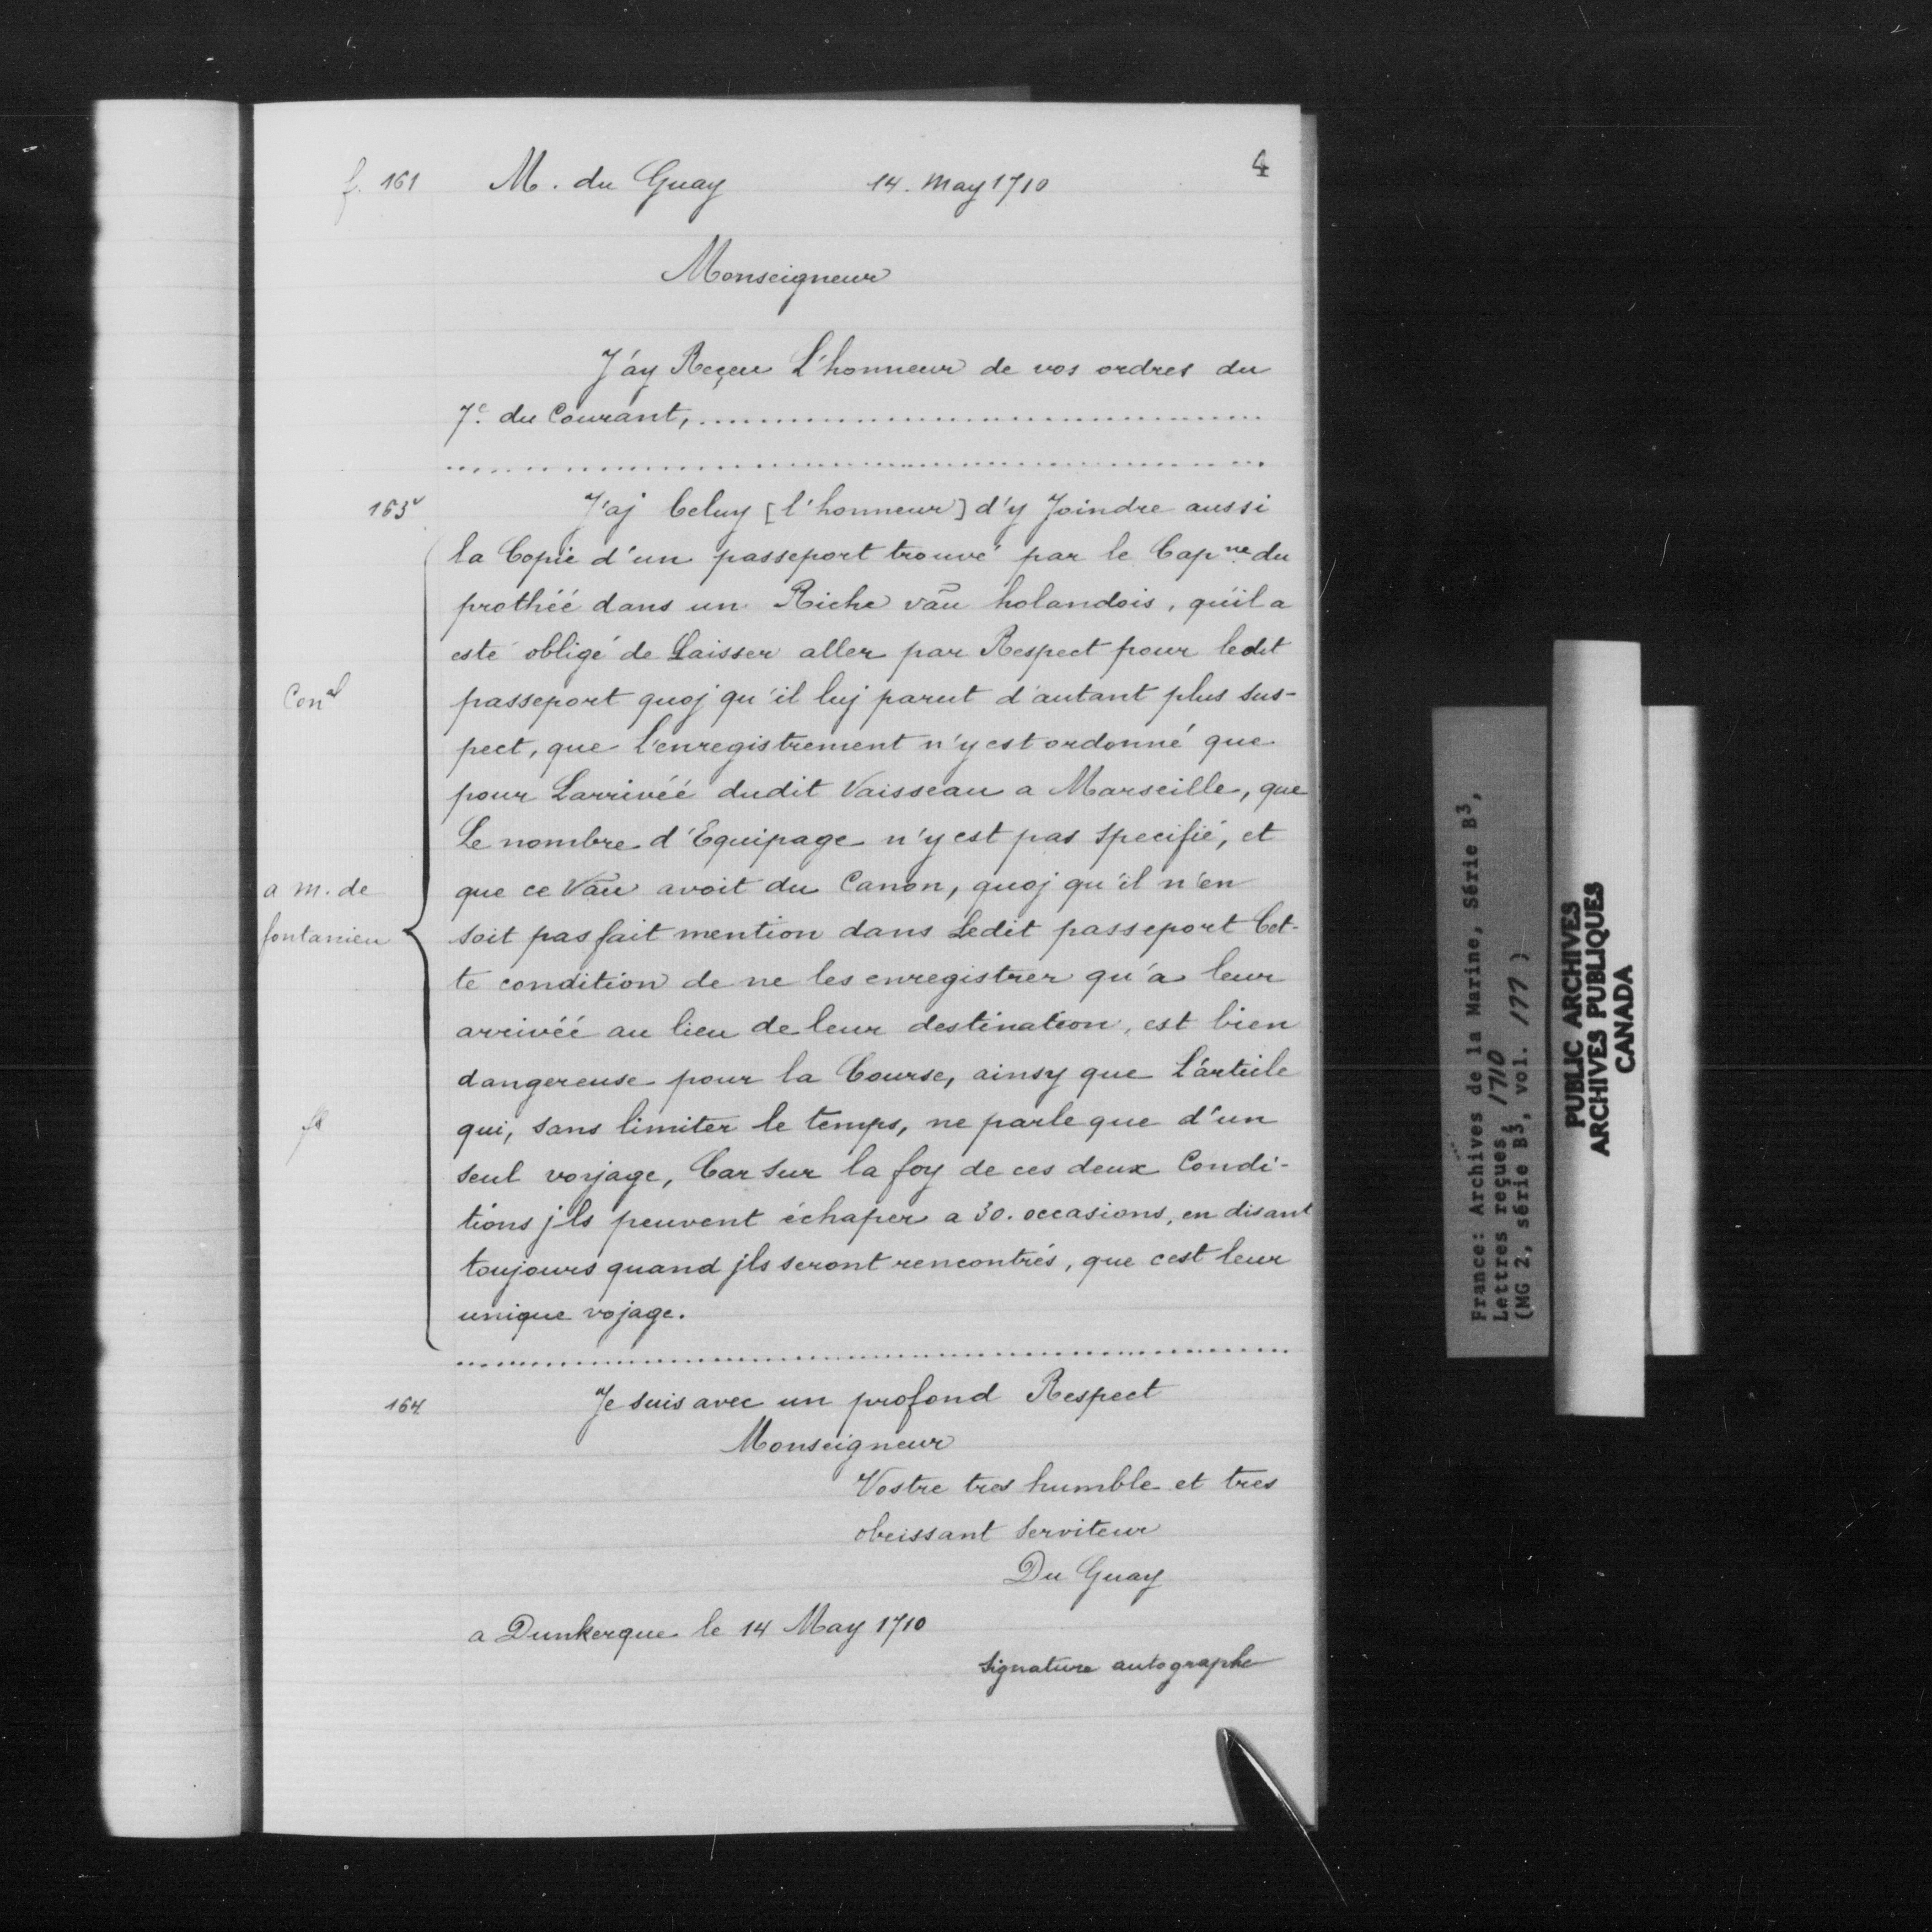 4
f. 161 M. du Guay 14. May 1710
Monseigneur
J'ay Reçeu L'honneur de vos ordres du
7e. du Courant, ........................................
........................................
163v J'aj Celuy [l'honneur] d'y Joindre aussi
la Copie d'un passeport trouvé par le Capne. du
prothéé dans un Riche vāu holandois, qu'il a
esté obligé de Laisser aller par Respect pour ledit
Conal passeport quoj qu'il luj parut d'autant plus sus-
pect, que l'enregistrement n'y est ordonné que
pour Larrivéé dudit Vaisseau a Marseille, que
Le nombre d'Equipage n'y est pas specifié, et
a m. de que ce Vāu avoit du Canon, quoj qu'il n'en
fontanieu soit pas fait mention dans Ledit passeport Cet-
te condition de ne les enregistrer qu'a leur
arrivéé au lieu de leur destination, est bien
dangereuse pour la Course, ainsy que L'article
qui, sans limiter le temps, ne parle que d'un
seul voyage, Car sur la foy de ces deux Condi-
tions jls peuvent échaper a 30. occasions, en disant
toujours quand jls seront rencontrés, que cest leur
unique vojage.
........................................
164 Je suis avec un profond Respect
Monseigneur
Vostre tres humble et tres
obeissant serviteur
Du Guay
a Dunkerque le 14 May 1710
signature autographe
France: Archives de la Marine, Série B3,
Lettres reçues, 1710
(MG 2, série B3, vol. 177)
PUBLIC ARCHIVES
ARCHIVES PUBLIQUES
CANADA